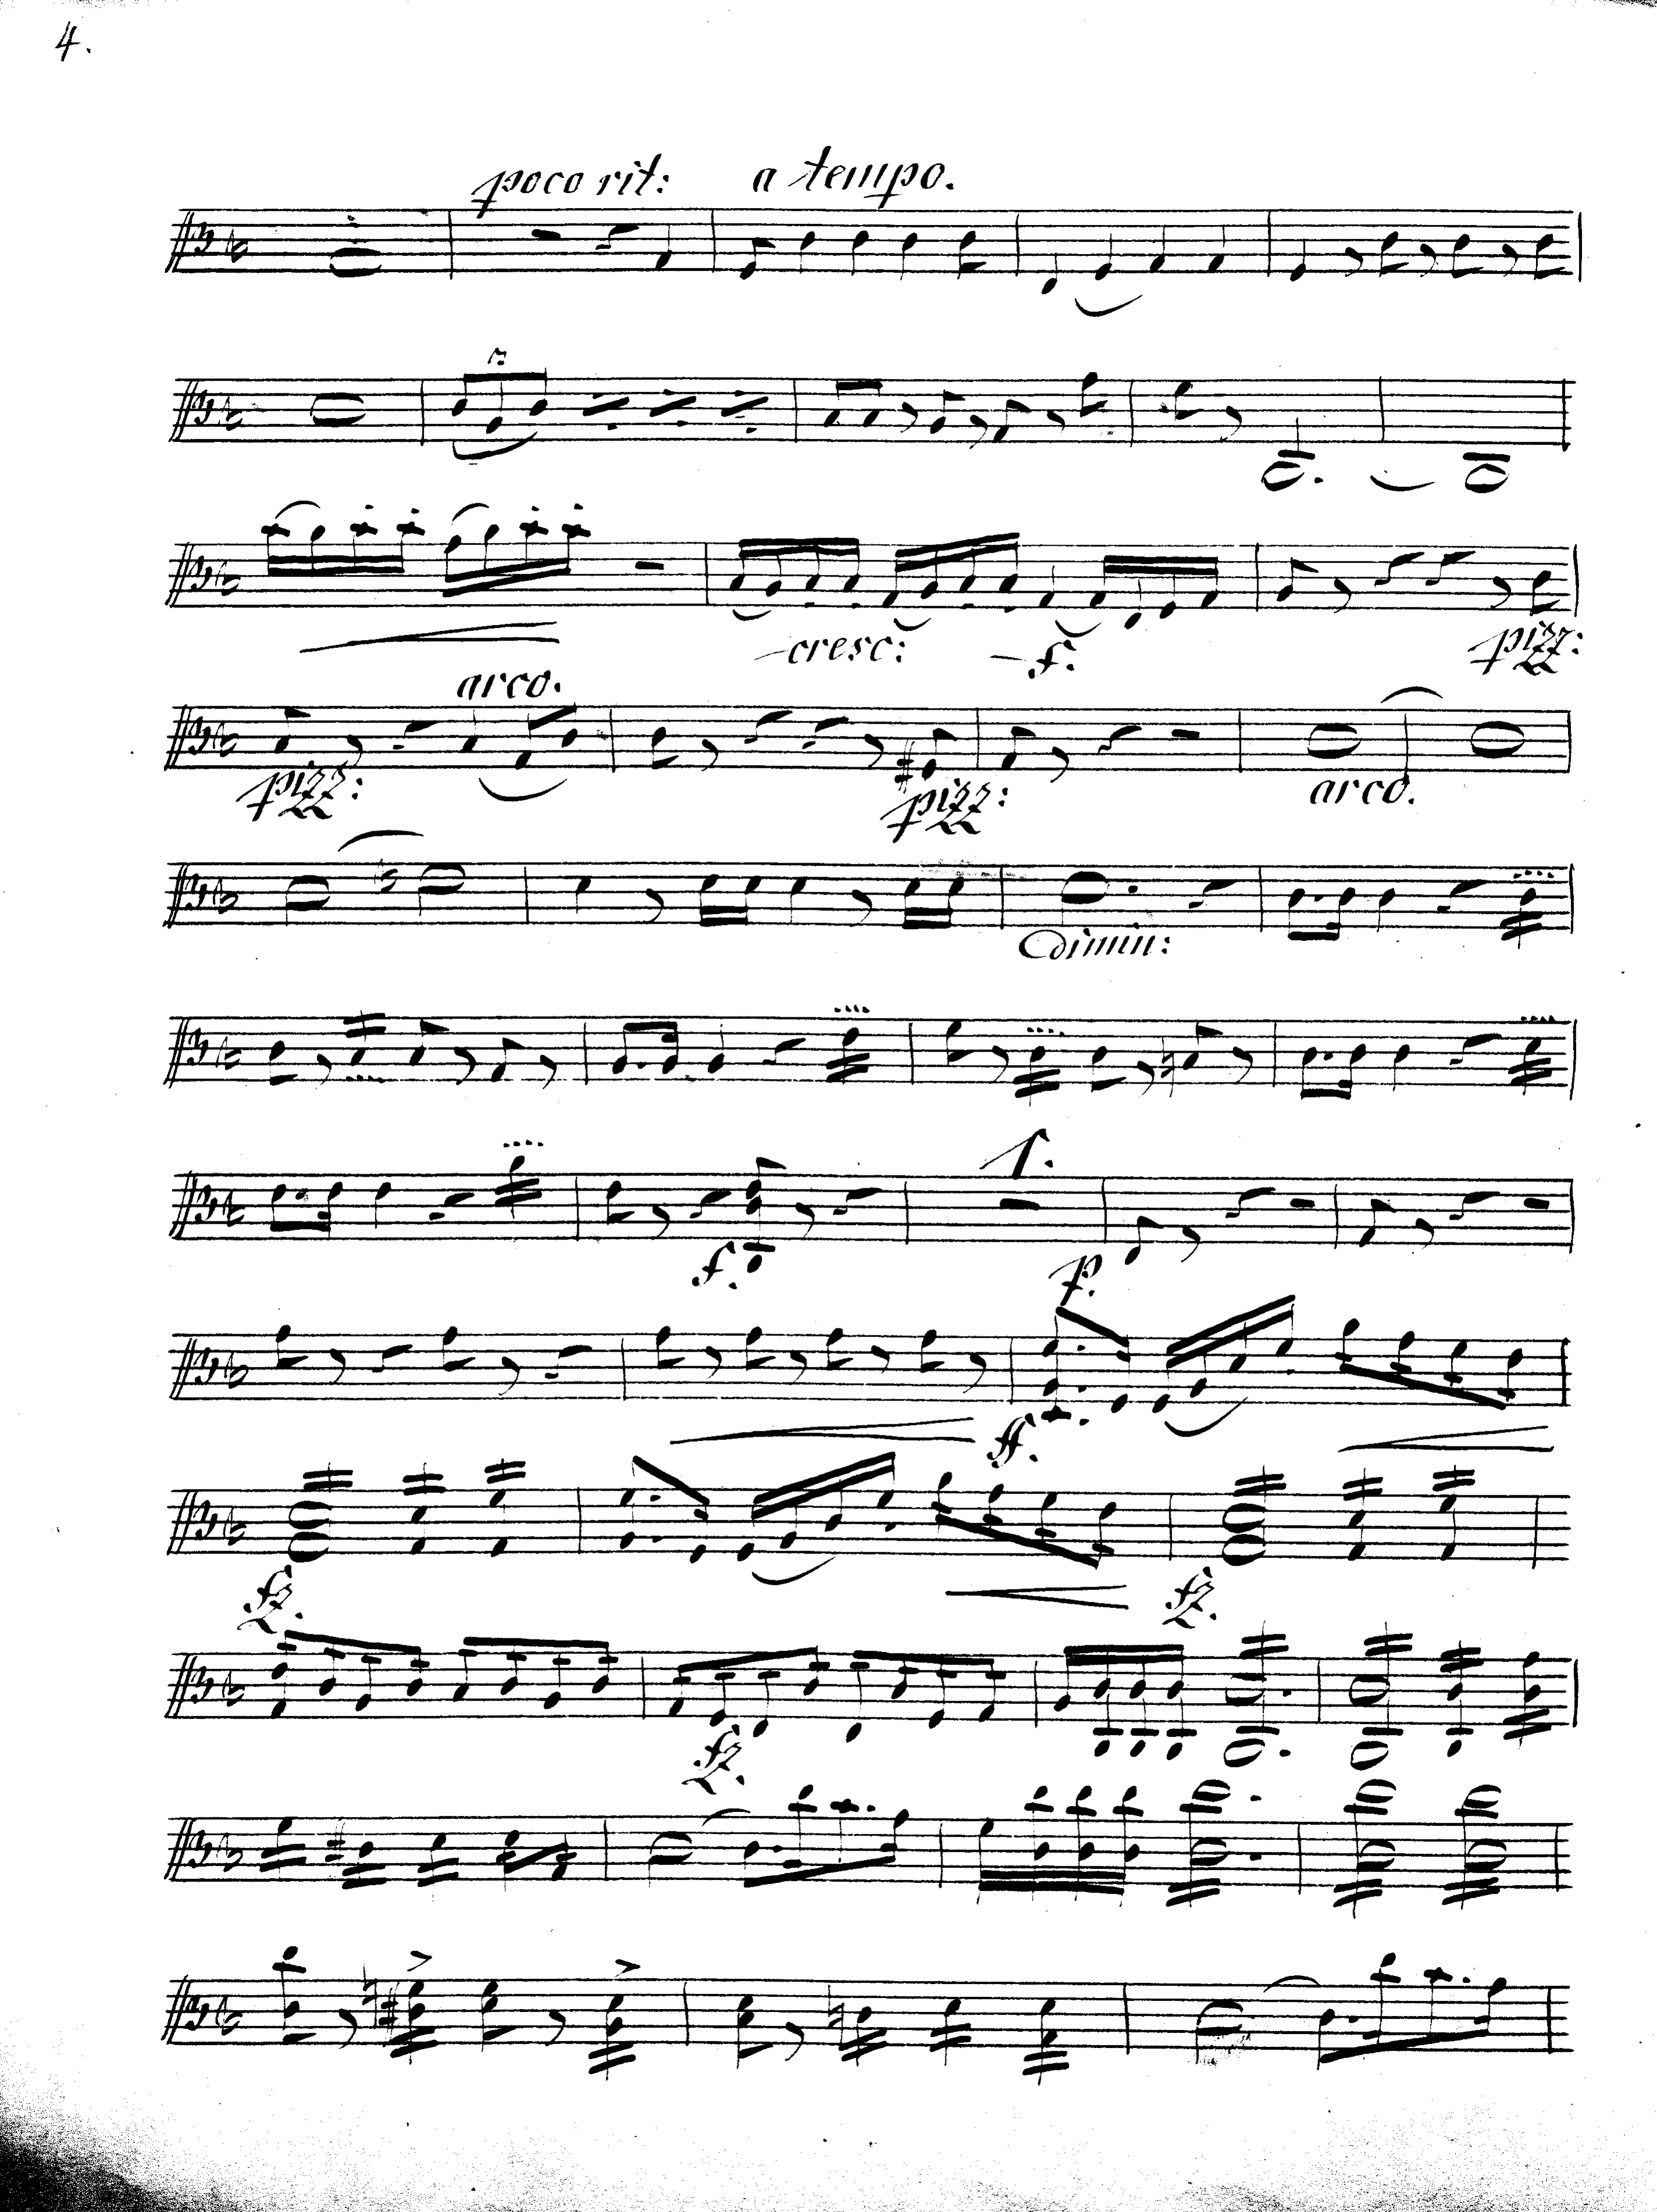 4.
poco rit: a tempo.
cresc: f. pizz:
arco.
pizz: pizz: arco.
Dimin:
1.
f. p.
ff.
fz. fz.
fz.